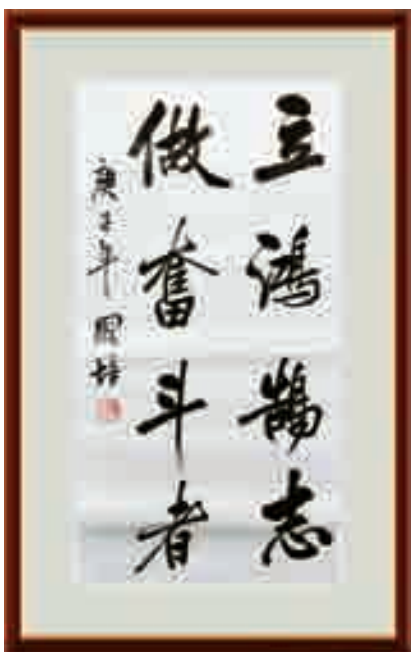 立鸿鹄志
做奋斗者
庚子年